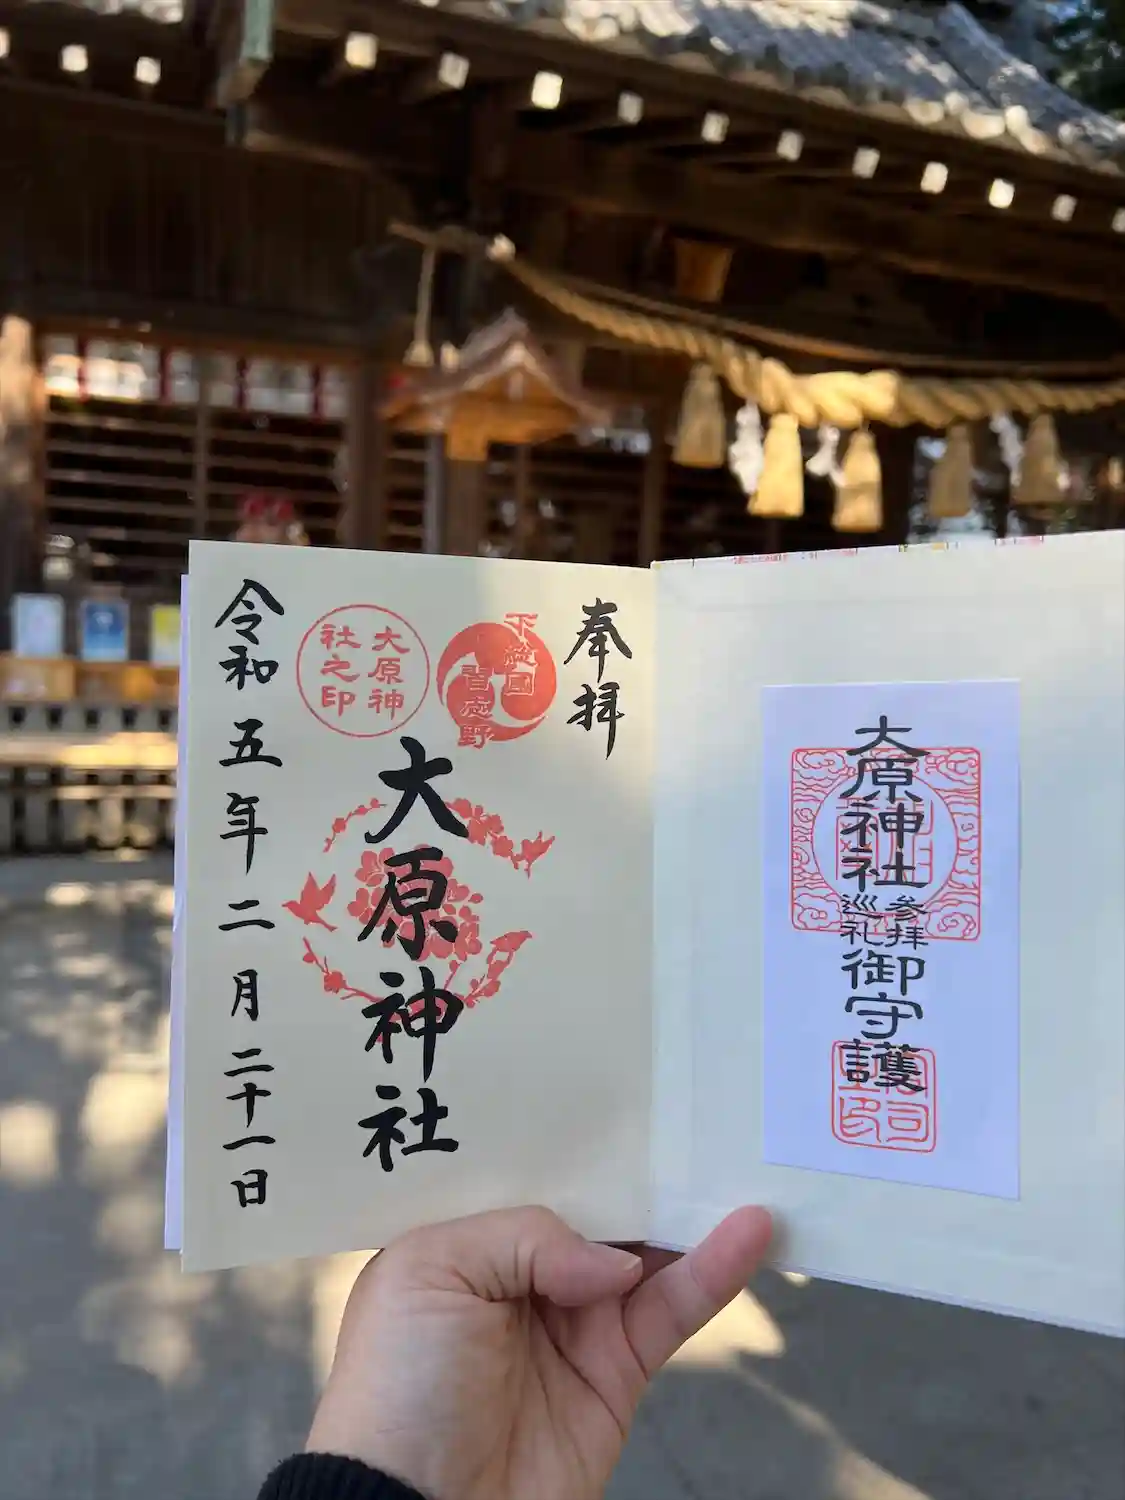 大原神社
参拝
巡礼
御守護
奉拝
下総國
習志野
大原神
社之印
大原神社
令和五年二月二十一日